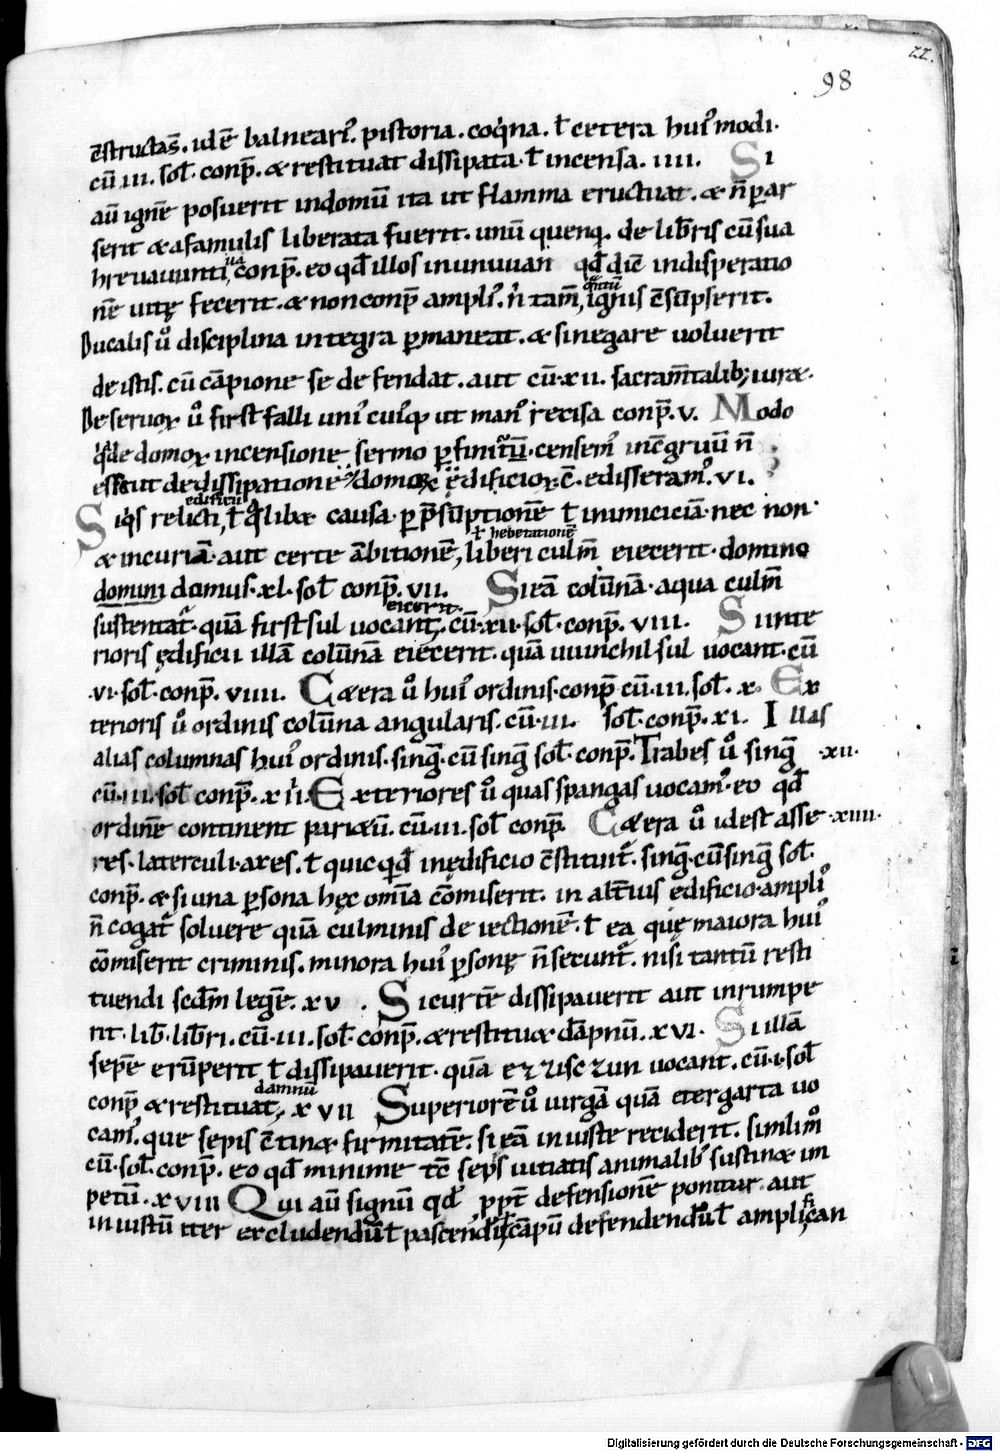 zz.
98
c̄structas̄. idē balnearꝫ. pistoria. coq̇na. ł cetera huꝰ modi.
cū .iii. soł. conp̄. & restituat dissipata. ł incensa. iiii. Si
aū ignē posuerit indomū ita ut flamma eructuat. & n̄ par
serit & a famulis liberata fuerit. unū quenq. de lib̄ris cū sua
hrevavunti, ua conp̄. eo qd̄ illos inunuuan qd̄ diē indisperatio
nē uitę fecerit. & non conp̄ ampliꝰ. n̄ tam̄, ignis c̄sūpserit.
Ducalis ů disciplina integra p̱maneat. & si negare uoluerit
de istis. cū cāpione se defendat. aut cū .xii. sacram̄talibꝫ iur&.
De seruoꝝ ů first falli uniꝰ cuiꝰq; ut manꝰ recisa conp̄. v. Modo
q̇de domoꝝ incensione sermo p̱finitū. censemꝰ incēgruū n̄
esse ut de dissipatione domoꝝ & ędificioꝝ. c̄. edisseramꝰ. vi.
edificiū
Si q̇s relicti, ł q̇lib& causa. p̱ p̄sūptionē ł inimiciciā. nec non
ł heberationē
& incuriā. aut certe ābitionē, liberi culm̄ eiecerit. domino
domini domus .xl. soł. conp̄. vii. Si eā colūnā. a qua culm̄
eicerit.
sustentatꝰ. quā firstsul uocant, cū .xii. soł. conp̄. viii. Si inte
rioris ędificii illā colūnā eiecerit. quā uuinchilsul uocant. cū
.vi. soł. conp̄. viiii. C&era ů huiꝰ ordinis. conp̄ cū .iii. soł. x. Ex
terioris ů ordinis colūna angularis. cū .iii. soł. conp̄. xi. Illas
alias columnas huiꝰ ordinis. sinḡ. cū sinḡ soł. conp̄. Trabes ů sinḡ .xii.
cū .iii. soł conp̄. xiii. Exteriores ů quas spangas uocamꝰ. eo qd̄
ordinē continent pari&ū. cū .iii. soł conp̄. C&era ů id est asse .xiiii.
res. laterculi. axes. ł quicqd̄ inędificio c̄stituitꝰ. sinḡ. cū sinḡ soł.
conp̄. & si una p̱sona hęc om̄ia cōmiserit. in alt̄ius edificio. ampliꝰ
n̄ cogatꝰ soluere quā culminis deiectionē. ł ea quę maiora huiꝰ
cōmiserit criminis. minora huiꝰ p̱sonę n̄ secuntꝰ. nisi tantū resti
tuendi scd̄m legē. xv. Si curtē dissipauerit aut inrumpe
rit. lib̄. lib̄ri. cū .iii. soł. conp̄. & restitu& dāpnū. xvi. Si illā
sepē erūperit ł dissipauerit. quā ezziszun uocant. cū .i. soł
damnū
conp̄ & restituat, xvii Superiorē ů uirgā quā etergarta uo
camꝰ. que sepis c̄tin& firmitatē. si eā in iuste reciderit. similimͦ
cū. soł. conp̄. eo qd̄ minime tc̄ sepis uitiatis animalibꝰ sustin& im
petū. xviii Qui aū signū qd̄ ppt̄ defensionē ponitur aut
in iustū iter excludendū ł pascendū ł cāpū defendendū ł amplifican
Digitalisierung gefördert durch die Deutsche Forschungsgemeinschaft - DFG